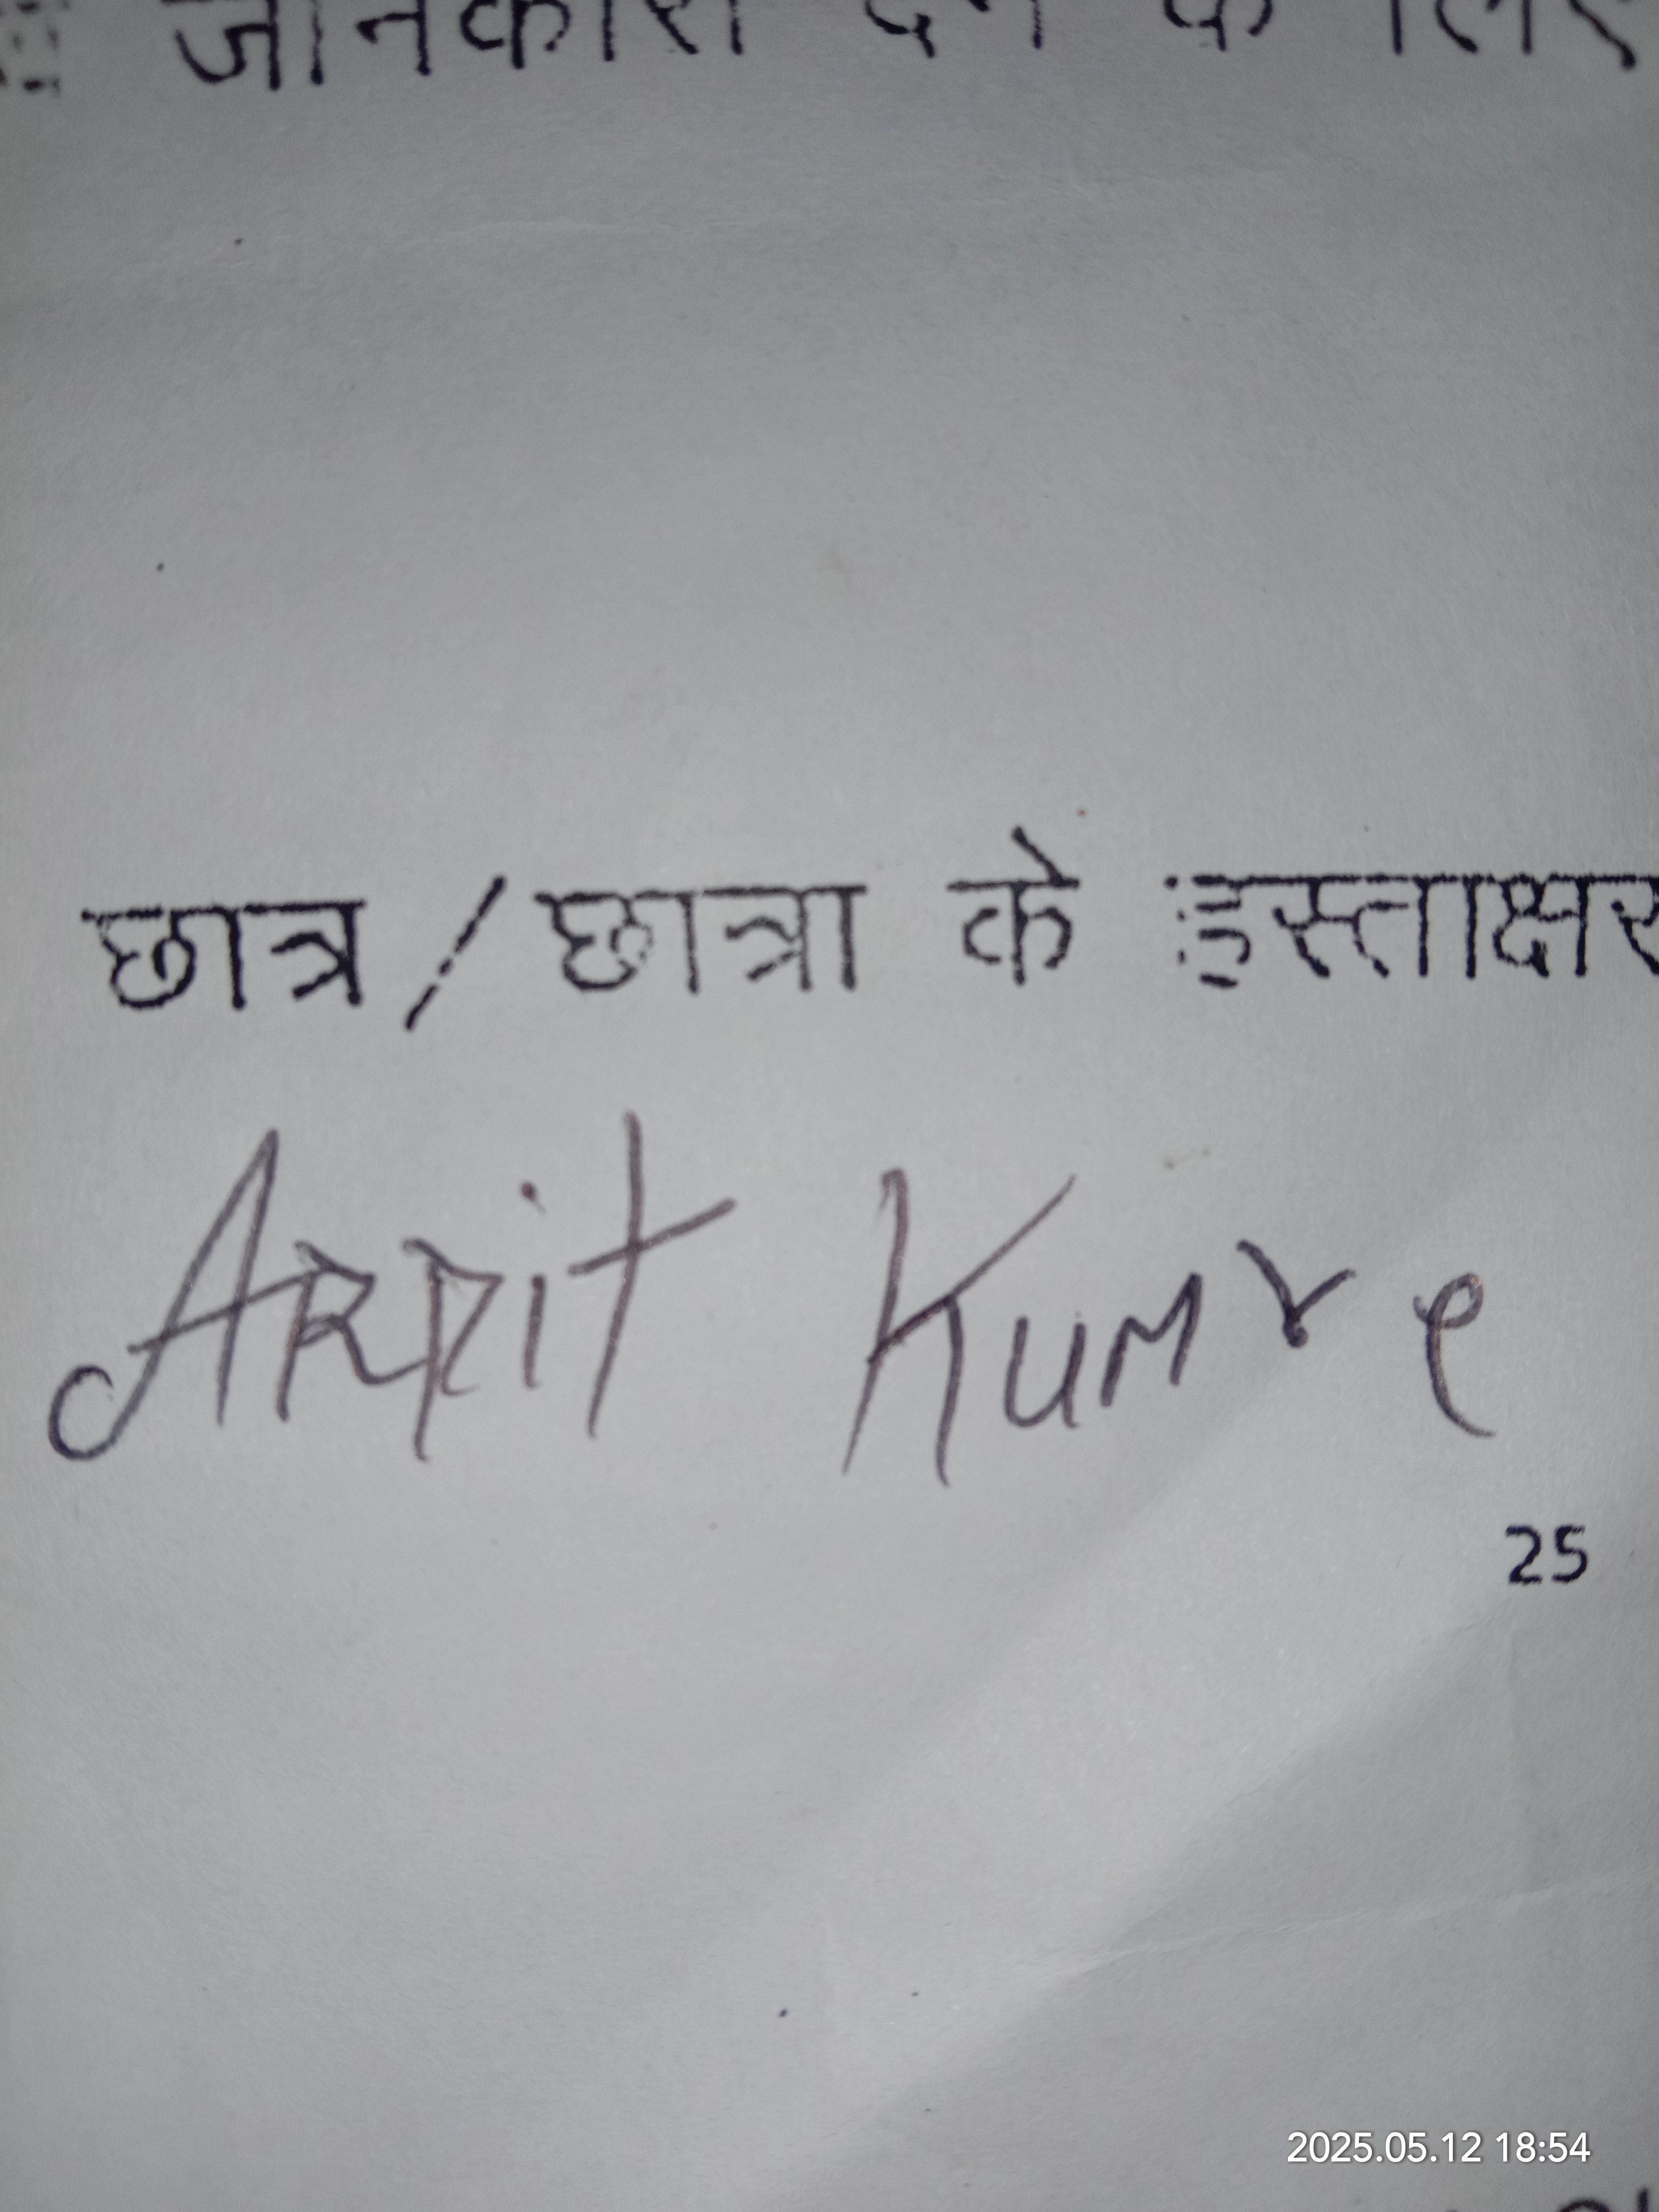 जानकारी देने के लिए
छात्र / छात्रा के हस्ताक्षर
Arpit Kumre
25
2025.05.12 18:54